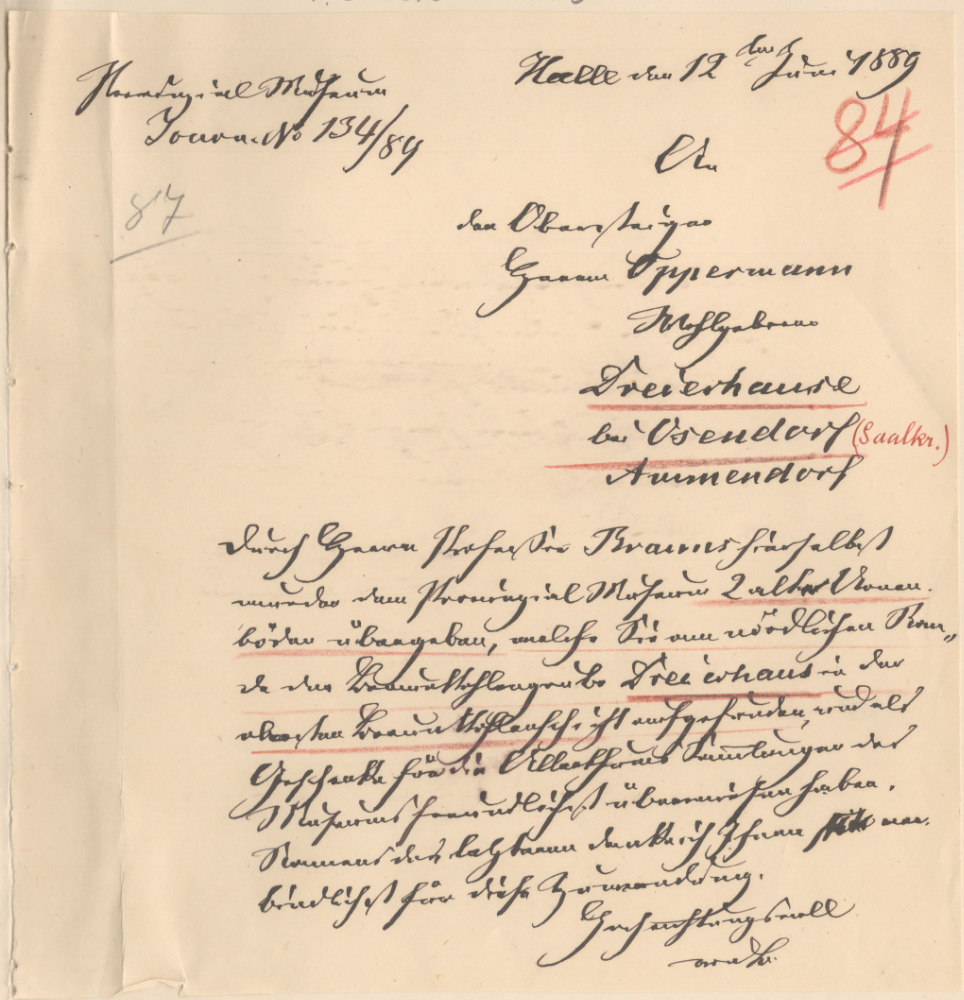 Provinzial Museum
Halle den 12 ten Juni 1889
Journ. No 134/89
84
An
87
den Obersteiger
Herrn Oppermann
Wohlgeboren
Dreierhause
bei Osendorf (Saalkr.)
Ammendorf
Durch Herrn Professor Brauns hierselbst
wurden dem Provinzial Museum 2 alte Urnen-
böden übergeben, welche Sie am nördlichen Ran-
de der Braunkohlengrube Dreierhaus in der
obersten Braunkohlenschicht aufgefunden und als
Geschenk für die Alterthums Sammlungen des
Museums freundlichst überwiesen haben.
Namens des letzteren danke ich Ihnen ver-
bindlichst für diese Zuwendung.
Hochachtungsvoll